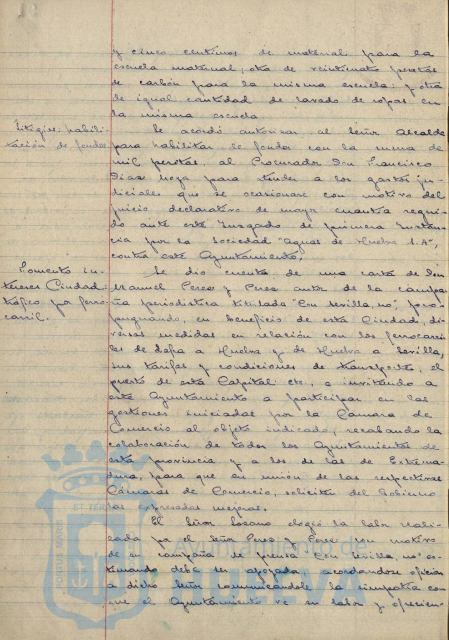 y cinco centimos de material para la
escuela maternal; otra de veinticuatro pesetas
de carbón para la misma escuela; y otra
de igual cantidad de lavado de ropas en
la misma escuela
Litigios: habili-
tación de fondos
Se acordó autorizar al Señor Alcalde
para habilitar de fondos con la suma de
mil pesetas, al Procurador Don Francisco
Díaz para atender a los gastos ju-
diciales que se ocasionare con motivo del
juicio declarativo de mayor cuantía segui-
do ante este Juzgado de primera Instan-
cia por la Sociedad "Aguas de Huelva S.A",
contra este Ayuntamiento.
Fomento in-
tereses Ciudad:
tráfico por ferro-
carril.
Se dió cuenta de una carta de Don
Manuel Perez y Perez autor de la campa-
ña periodistica titulada "Con Sevilla, no", pro-
pugnando, en beneficio de esta Ciudad, di-
versas medidas en relación con los ferrocarri-
les de Zafra a Huelva y de Huelva a Sevilla,
sus tarifas y condiciones de transportes, el
puerto de esta Capital etc, e invitando a
este Ayuntamiento a participar en las
gestiones iniciadas por la Cámara de
Comercio al objeto indicado, recabando la
colaboración de todos los Ayuntamientos de
esta provincia y a los de las de Extrema-
dura, para que en unión de las respectivas
Cámaras de Comercio, soliciten del Gobierno
las expresadas mejoras.
El Señor Lozano elogió la labor reali-
zada por el Señor Perez y Perez con motivo
de su campaña de prensa "Con Sevilla, no" es-
timando debe ser apoyada acordandose oficiar
a dicho Señor comunicándole la simpatía con
que el Ayuntamiento ve su labor y ofrecien-